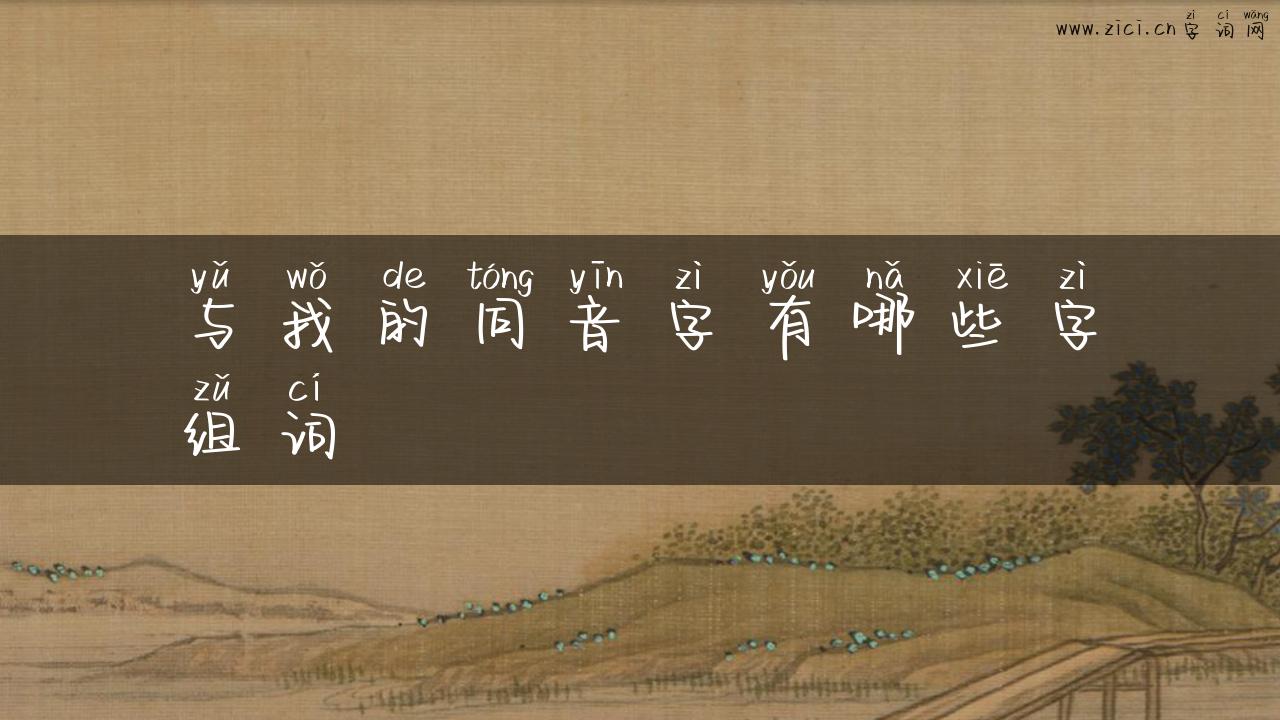 zì cí wǎng
www.zici.cn字词网
yǔ wǒ de tóng yīn zì yǒu nǎ xiē zì
与我的同音字有哪些字
zǔ cí
组词